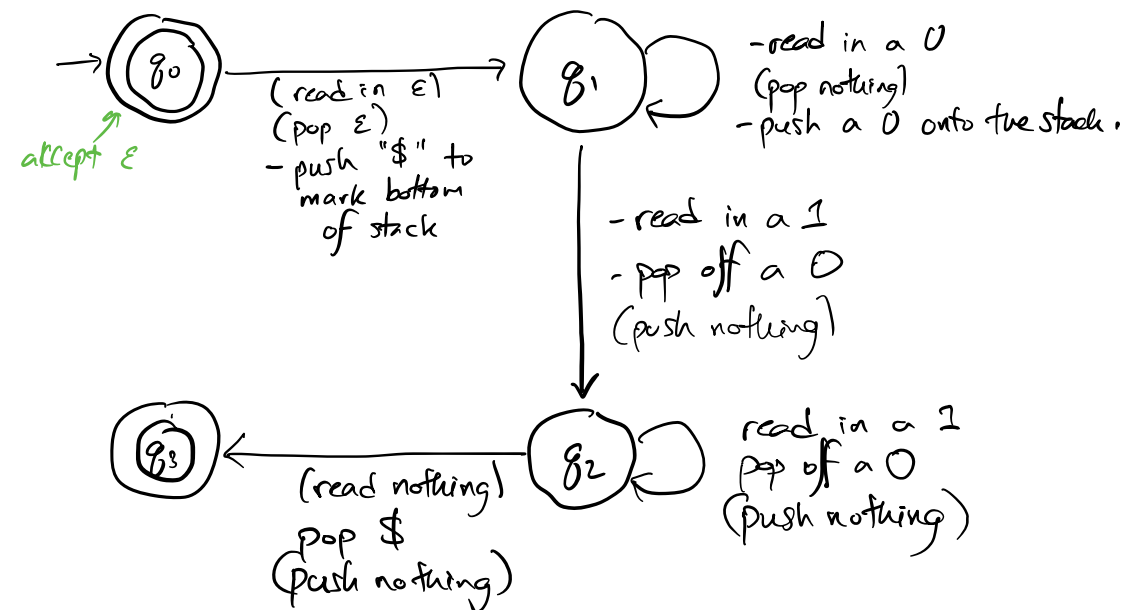 q0
accept ε
(read in ε)
(pop ε)
- push "$" to
mark bottom
of stack
q1
-read in a 0
(pop nothing)
-push a 0 onto the stack.
-read in a 1
- pop off a 0
(push nothing)
q2
read in a 1
pop off a 0
(push nothing)
(read nothing)
pop $
(push nothing)
q3